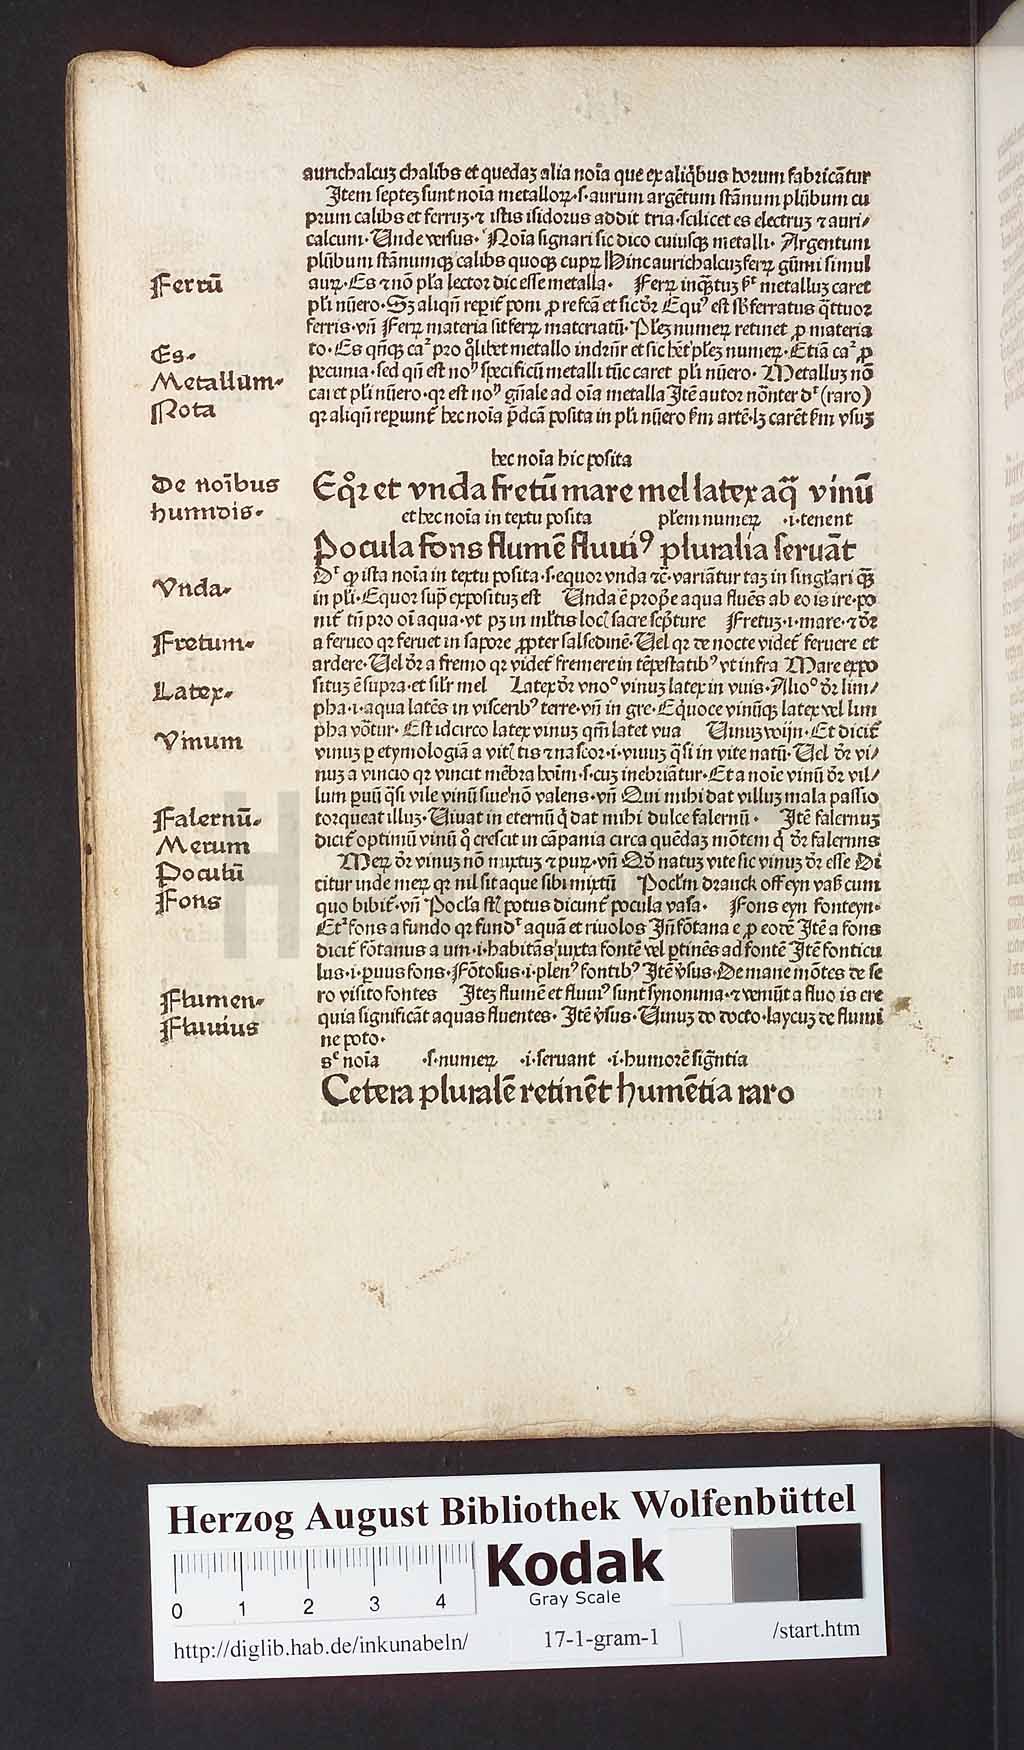 aurichalcuꝫ chalibs et quedaꝫ alia noīa que ex aliq̄bus horum fabricātur
Item septeꝫ sunt noīa metalloꝝ·s·aurum argētum stānum plūbum cu
prum calibs et ferruꝫ·⁊ istis isidorus addit tria·scilicet es electruꝫ ⁊ auri/
calcum·Unde versus·Noīa signari sic dico cuiusqꝫ metalli·Argentum
plūbum stānumqꝫ calibs quoqꝫ cupꝝ Hinc aurichalcuꝫ ferꝝ gūmi simul
Ferrū
auꝝ·Es ⁊ nō pl̄a lector dic esse metalla· Ferꝝ inq̄ꝫtuꝫ metalluꝫ caret
pl̄i nūero·Sꝫ aliqn̄ reꝑit̄ poni ꝓ re fcā et sic dr̄ Equꝰ est sb̄ ferratus q̄ttuor
ferris·vn̄ Ferꝝ materia sit ferꝝ materiatū·Pl̄eꝫ numeꝝ retinet ꝓ materia
Es·
to·Es qn̄qꝫ pro q̄libet metallo et sic hēt pl̄eꝫ numeꝝ·Etiā ꝓ
Metallum·
pecunia·sed qn̄ est specificū metalli tūc caret pl̄i nūero·Metalluꝫ nō
Nota
caret pl̄i nūero·qꝛ est gn̄ale ad oīa metalla Itē autor nōnter (raro)
qꝛ aliqn̄ reꝑiunt̄ hec noīa p̄dcā posita in pl̄i nūero artē·lꝫ carēt vsuꝫ
hec noīa hic posita
De noībus
Eq̊ꝛ et vnda fretū mare mel latex aq̄ꝫ vinū
humidis·
et hec noīa in textu posita pl̄em numeꝝ ·i·tenent
Pocula fons flumē fluuiꝰ pluralia seruāt
ista noīa in textu posita·s·equor vnda ⁊c̄·variātur taꝫ in singl̄ari qꝫ̄
Vnda·
in pl̄i·Equor sup̄ expositus est Unda ē prop̄e aqua fluēs ab eo is ire·po
nit̄ tn̄ pro oī aqua·vt pꝫ in ml̄tis locꝭ sacre scp̄ture Fretuꝫ·i·mare·⁊ dr̄
Fretum·
a ferueo qꝛ feruet in sapore ꝓpter salsedinē·Uel qꝛ de nocte videt̄ feruere et
ardere·Uel dr̄ a fremo qꝛ videt̄ fremere in tēpestatibꝰ vt infra Mare expo
Latex·
situꝫ ē supra·et sil̄r mel Latex dr̄ vinuꝫ latex in vuis· dr̄ lim/
pha·i·aqua latēs in visceribꝰ terre·vn̄ in gre·Eq̄uoce vinūqꝫ latex vel lim
Vinum
pha vōtur·Est idcirco latex vinuꝫ qm̄ latet vua Uinuꝫ wijn·Et dicit̄
vinuꝫ ꝑ etymologiā a vitꝭ tis ⁊ nascor·i·vinuꝫ q̄si in vite natū·Uel dr̄ vi/
nuꝫ a vincio qꝛ vincit mēbra hoīm·s·cuꝫ inebriātur·Et a noīe vinū dr̄ vil/
lum ꝑuū q̄si vile vinū siue nō valens·vn̄ Qui mihi dat villuꝫ mala passio
Falernū·
torqueat illuꝫ·Uiuat in eternū q̄ dat mihi dulce falernū· Itē falernuꝫ
Merum
dicit̄ optimū vinū q̊ crescit in cāpania circa quēdaꝫ mōtem q̄ dr̄ falernus
Poculū
Meꝝ dr̄ vinuꝫ nō mixtuꝫ ⁊ puꝝ·vn̄ Qd̄ natuꝫ vite sic vinuꝫ dr̄ esse Di
citur inde meꝝ qꝛ nil sit aque sibi mixtū Pocl̄m dranck off eyn vaß cum
Fons
quo bibit̄·vn̄ Pocl̄a potus dicunt̄ pocula vasa· Fons eyn fonteyn·
fons a fundo qꝛ aquā et riuolos Jn̄ fōtana e ꝓ eodē Itē a fons
dicit̄ fōtanus a um·i·habitās iuxta fontē vel ꝑtinēs ad fontē Itē fonticu
lus·i·ꝑuus fons·Fōtosus·i·plenꝰ fontibꝰ Itē v̄sus·De mane mōtes de se
Flumen·
ro visito fontes Iteꝫ flumē et fluuiꝰ sunt synonima·⁊ veniūt a fluo is ere
Fluuius
quia significāt aquas fluentes· Itē v̄sus·Uinuꝫ do docto·laycuꝫ de flumi
ne poto·
noīa ·s·numeꝝ ·i·seruant ·i·humorē signtia
Cetera pluralē retinēt humētia raro
Herzog August Bibliothek Wolfenbüttel
Kodak
Gray Scale
0 1 2 3 4
http://diglib.hab.de/inkunabeln/ 17-1-gram-1 /start.htm